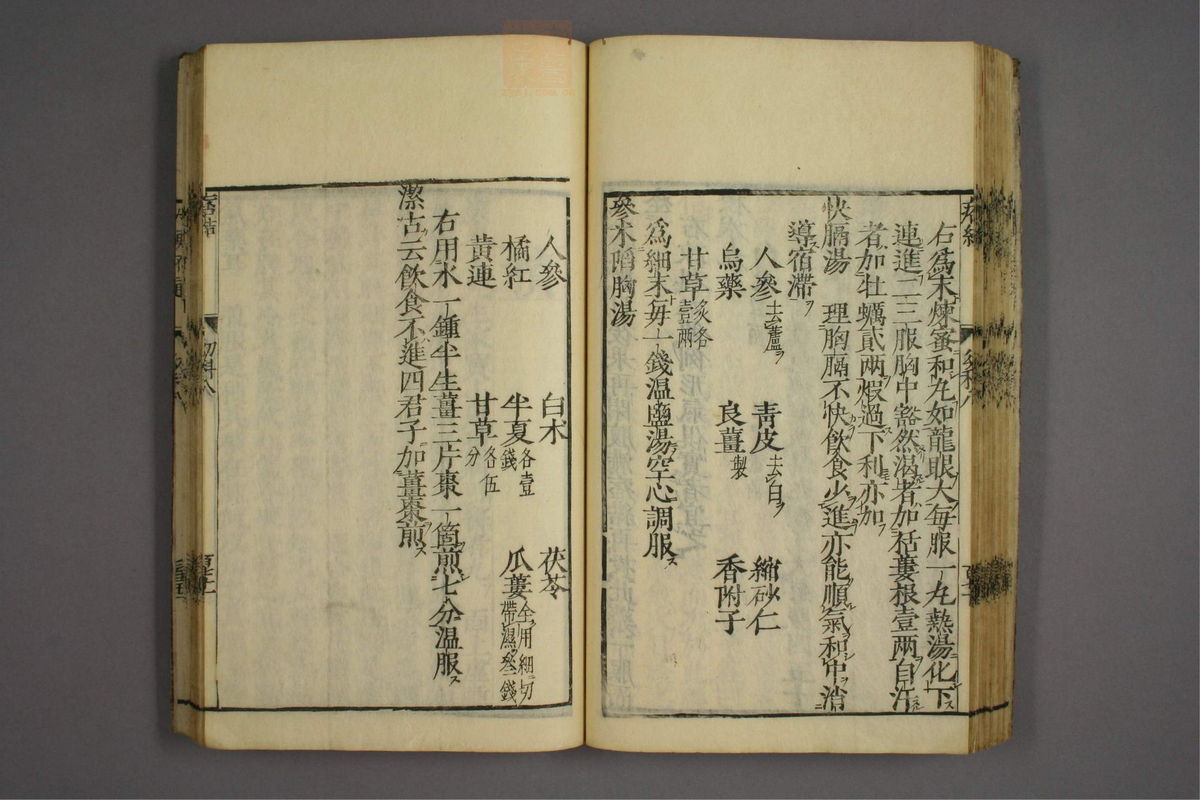 右爲末煉蜜和丸如龍眼大毎服一丸熱湯化下ス
連進二三服胸中豁然渇者加栝蔞根壹兩自汗
者加牡蠣貳兩煆過下利亦加フ
快膈湯 理胸膈不快飮食少進亦能順氣和中消
導宿滯ヲ
人參去蘆ヲ 青皮去白ヲ 縮砂仁
烏藥 良薑製 香附子
甘草炙各壹兩
爲細末毎一錢温鹽湯空心調服ス
參朮陷胸湯
人參 白朮 茯苓
橘紅 半夏各壹錢 瓜蔞全用細切帶濕參錢
黃連 甘草各伍分
右用水一鍾半生薑三片棗一箇煎七分温服ス
潔古云飮食不進四君子加薑棗煎ス